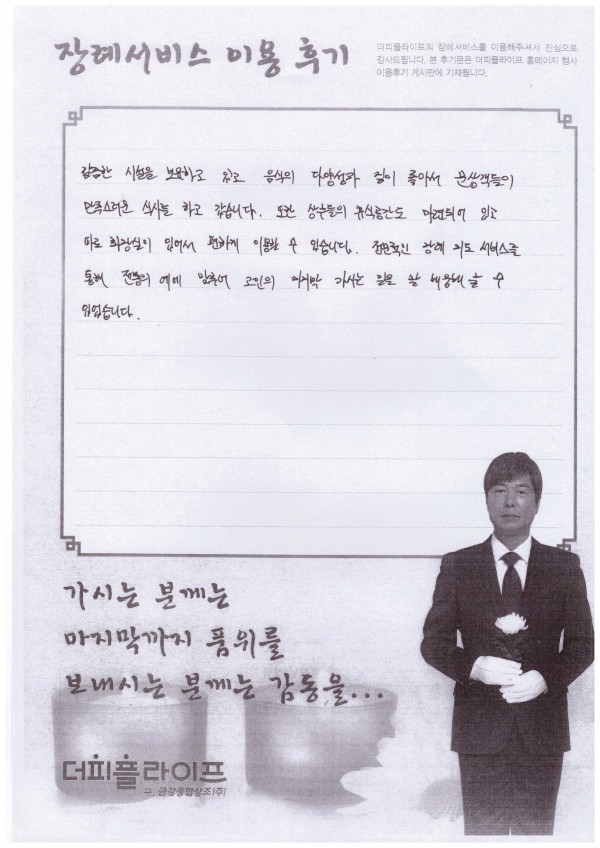 장례서비스 이용 후기
더피플라이프의 장례서비스를 이용해주셔서 진심으로
감사드립니다. 본 후기문은 더피플라이프 홈페이지 행사
이용후기 게시판에 기재됩니다.
깔끔한 시설을 보유하고 있고 음식의 다양성과 질이 좋아서 문상객들이
만족스러운 식사를 하고 갔습니다. 또한 상주들의 휴식공간도 마련되어 있고
따로 화장실이 있어서 편하게 이용할 수 있습니다. 전문적인 장례 지도 서비스를
통해 전통의 예에 맞추어 고인의 마지막 가시는 길을 잘 배웅해 줄 수
있었습니다.
가시는 분께는
마지막까지 품위를
보내시는 분께는 감동을...
더피플라이프
구. 금강종합상조(주)